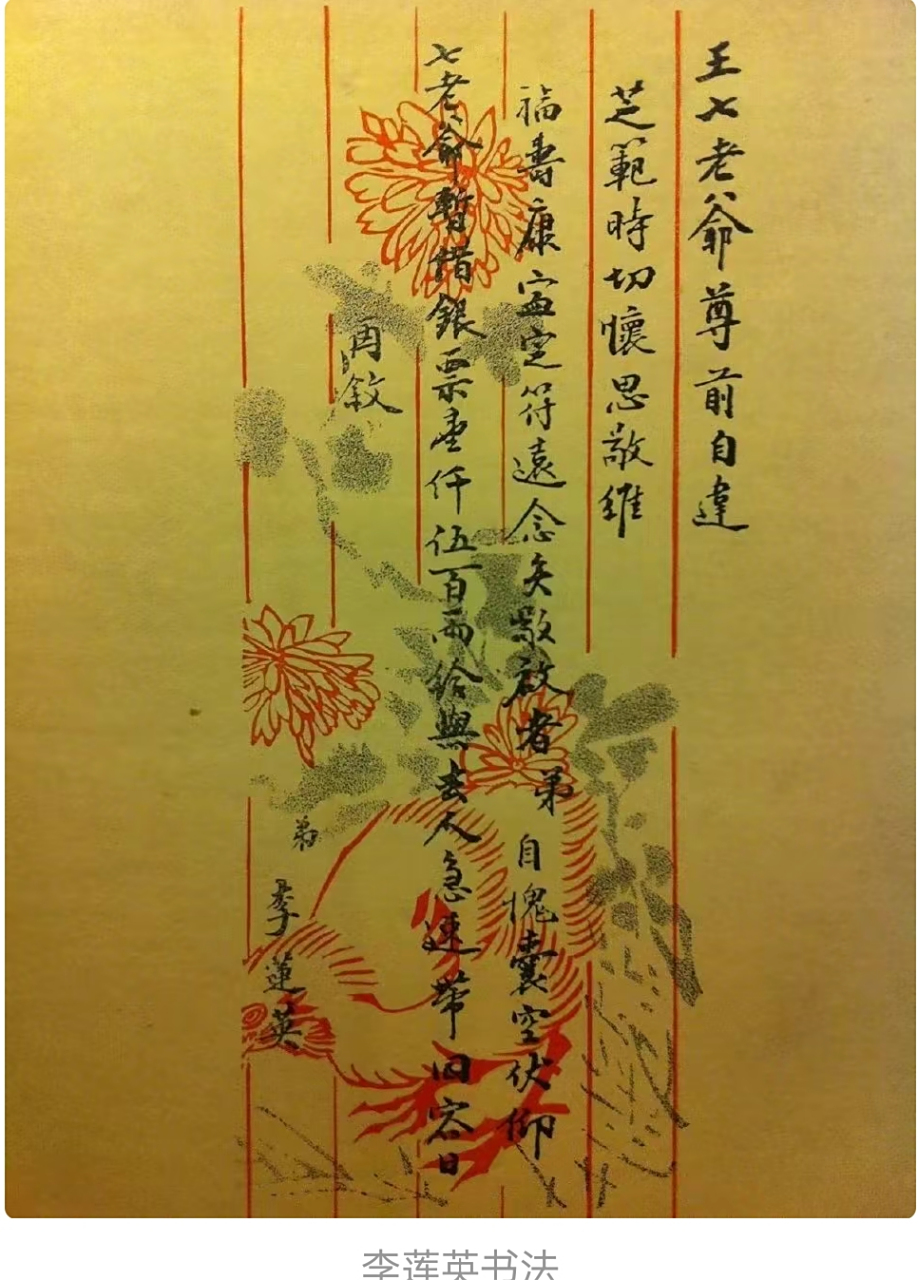 王七老爺尊前自違
芝範時切懷思敬維
福壽康寧定符遠念矣敬啟者弟自愧囊空伏仰
七老爺暫借銀票壹仟伍百兩給與去人急速帶回容日
再敘
弟
李蓮英
李莲英书法